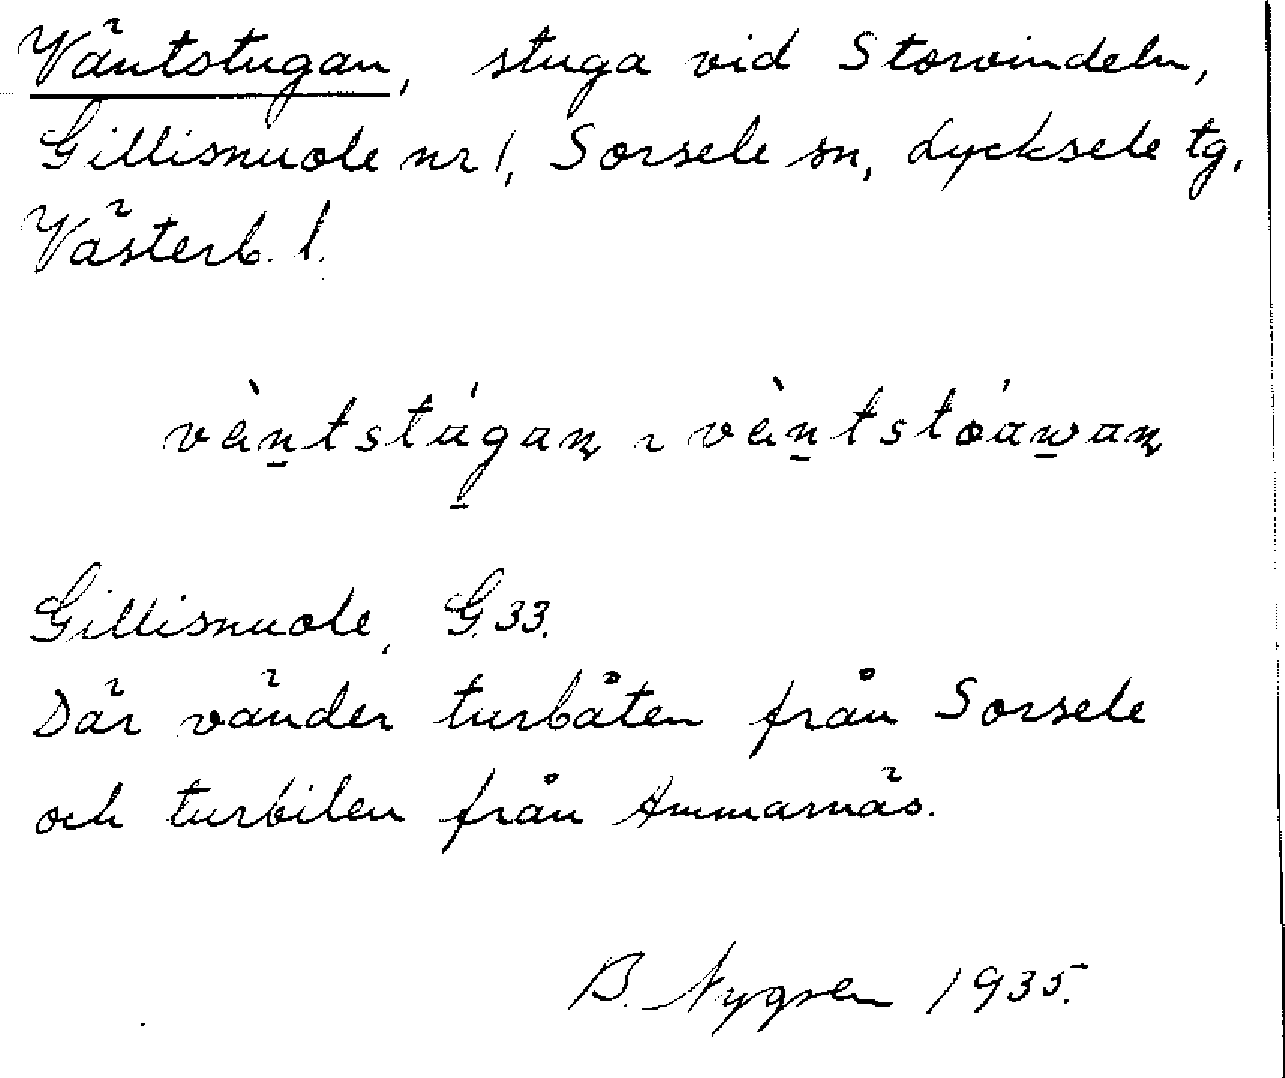 Väntstugan, stuga vid Storvindeln,
Gillisnuole nr 1, Sorsele sn, Lycksele tg,
Västerb. l.
vä̀ntstúgan ~ vä̀ntstóawan
Gillisnuole, G.33.
Där vänder turbåten från Sorsele
och turbilen från Ammarnäs.
B. Nygren 1935.